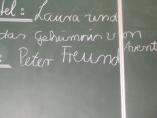 tel: Laura und
das Geheimnis von
Avent
: Peter Freund